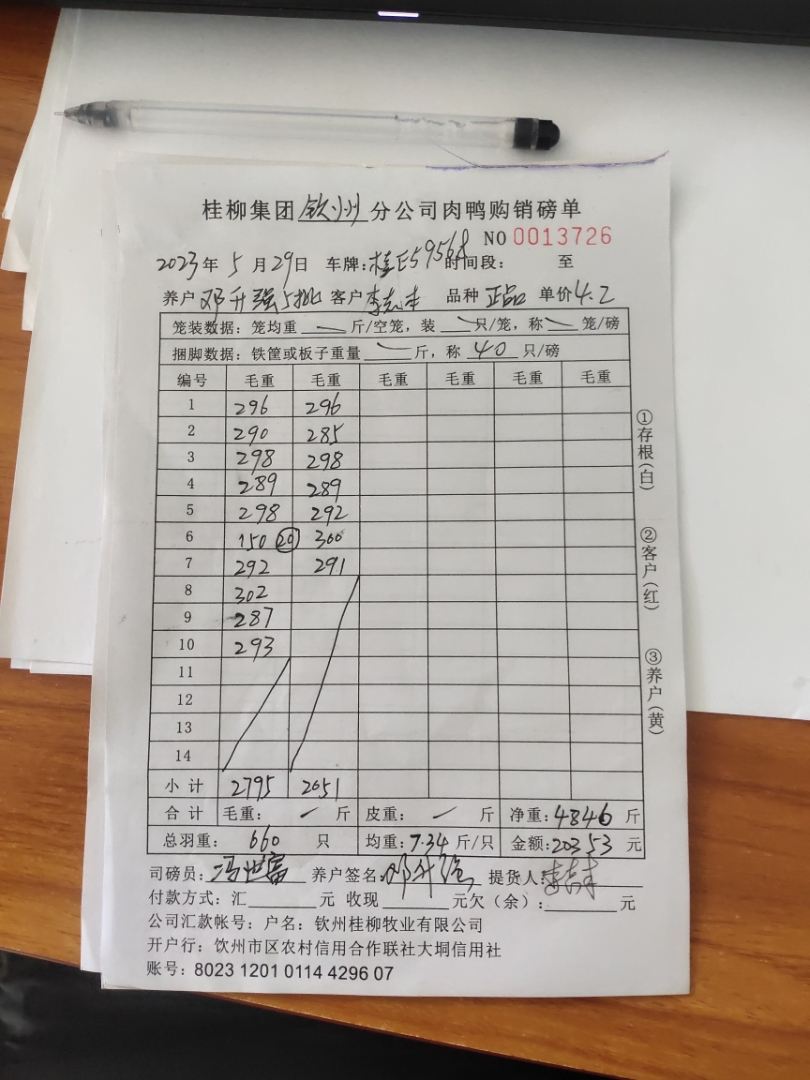 桂柳集团钦州分公司肉鸭购销磅单
NO 0013726
2023年5月29日 车牌:桂E59568 时间段: 至
养户 邓升强5批 客户 李志丰 品种 正品 单价4.2
笼装数据:笼均重 斤/空笼,装 只/笼,称 笼/磅
捆脚数据:铁筐或板子重量 斤,称 40 只/磅
编号 毛重 毛重 毛重 毛重 毛重 毛重
1 296 296
2 290 285
3 298 298
4 289 289
5 298 292
6 150 20 300
7 292 291
8 302
9 287
10 293
11
12
13
14
小计 2795 2051
合计 毛重: 斤 皮重: 斤 净重:4846 斤
总羽重: 660 只 均重:7.34 斤/只 金额:20353 元
司磅员: 冯世富 养户签名: 邓升强 提货人: 李志丰
付款方式:汇 元 收现 元欠(余): 元
公司汇款帐号:户名:钦州桂柳牧业有限公司
开户行:钦州市区农村信用合作联社大垌信用社
账号:8023 1201 0114 4296 07
①存根(白)
②客户(红)
③养户(黄)